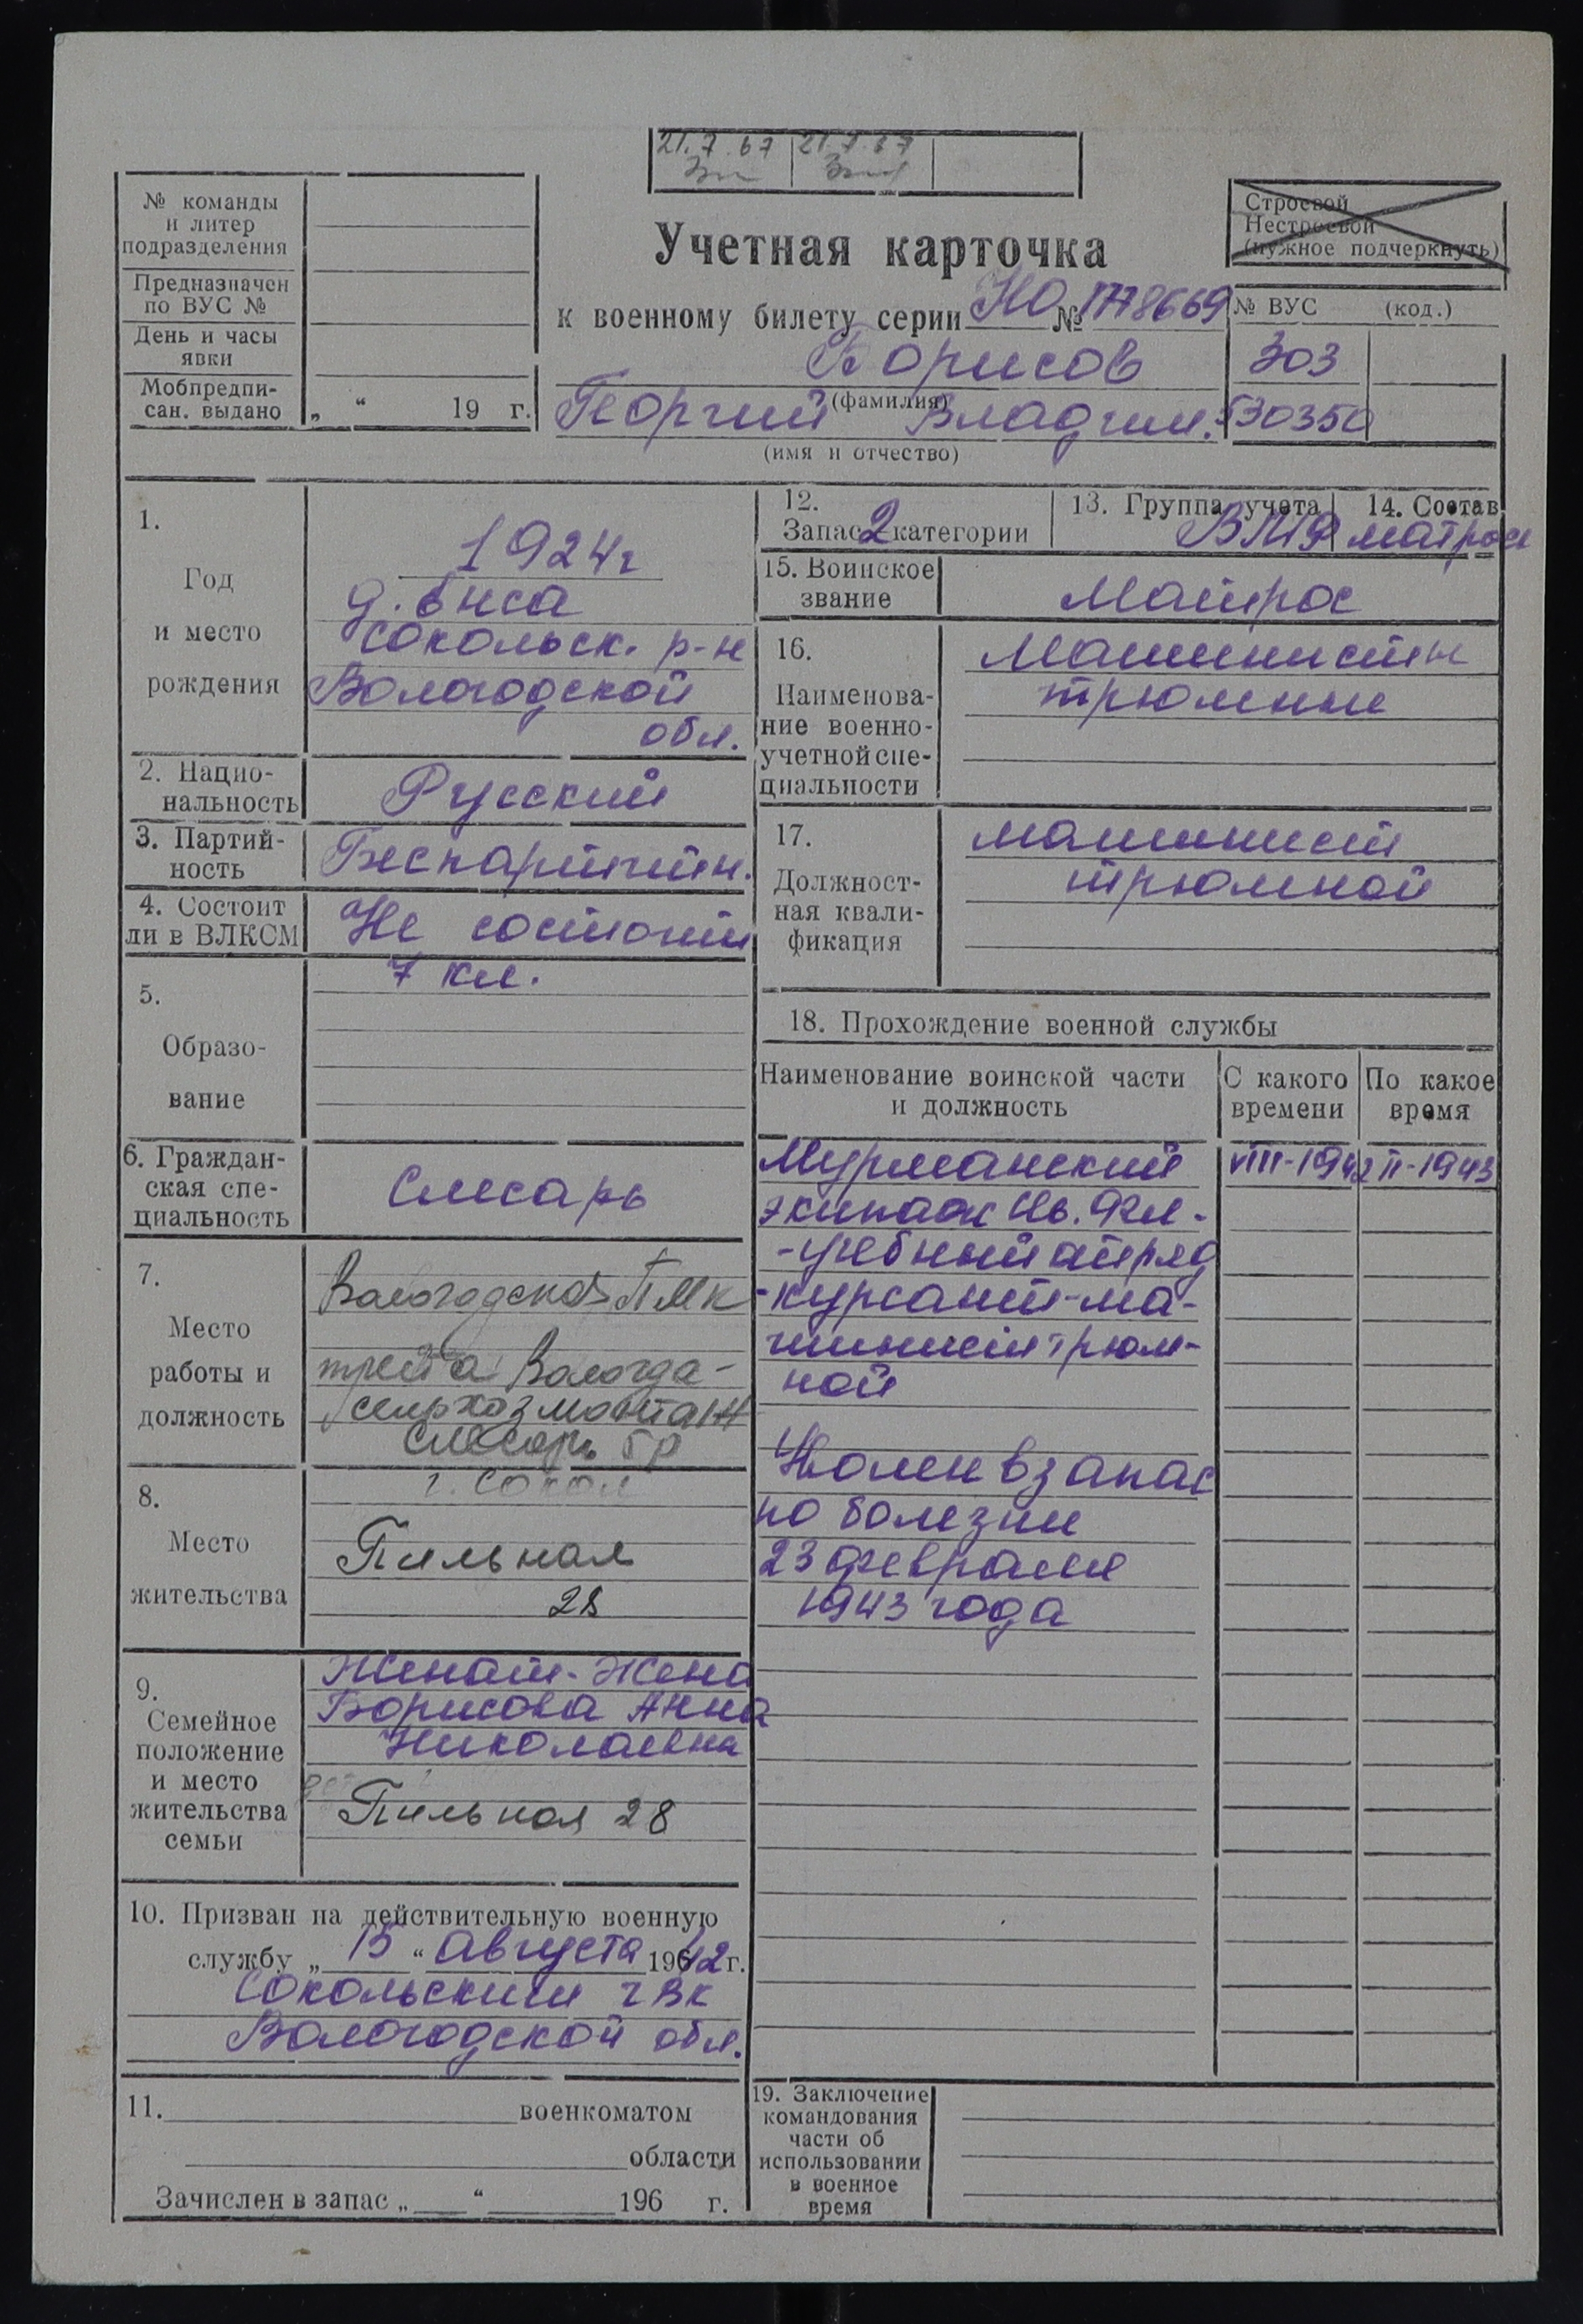 21.7.67 21.7.67
№ команды
и литер
подразделения
Предназначен
по ВУС №
День и часы
явки
Мобпредпи-
сан. выдано „ “ 19 г.
Учетная карточка
к военному билету серии НО № 1778669
Борисов
(фамилия)
Георгий Владим.
(имя и отчество)
Строевой
Нестроевой
(нужное подчеркнуть)
№ ВУС (код.)
303
530350
1.
Год
и место
рождения
1924г
д. Внса
Сокольск. р-н
Вологодской
обл.
2. Нацио-
нальность
Русский
3. Партий-
ность
Беспартийн.
4. Состоит
ли в ВЛКСМ
Не состоит
5.
Образо-
вание
7 кл.
6. Граждан-
ская спе-
циальность
Слесарь
7.
Место
работы и
должность
Вологодская ПМК
треста Вологда-
сельхозмонтаж
слесарь 5р
8.
Место
жительства
г. Сокол
Пильная
28
9.
Семейное
положение
и место
жительства
семьи
Женат-Жена
Борисова Анна
Николаевна
Пильная 28
10. Призван на действительную военную
службу „ 15 “ августа 1942 г.
Сокольским ГВК
Вологодской обл.
11. военкоматом
области
Зачислен в запас „ “ 196 г.
12.
Запас 2 категории
13. Группа учета
ВМФ
14. Состав
матрос
15. Воинское
звание
Матрос
16.
Наименова-
ние военно-
учетной спе-
циальности
Машинисты
трюмные
17.
Должност-
ная квали-
фикация
машинист
трюмной
18. Прохождение военной службы
Наименование воинской части
и должность
С какого
времени
По какое
время
Мурманский VIII-1942 II-1943
экипаж Св. Фл.-
-учебный отряд
-курсант-ма-
шинист трюм-
ной
Уволен в запас
по болезни
23 февраля
1943 года
19. Заключение
командования
части об
использовании
в военное
время